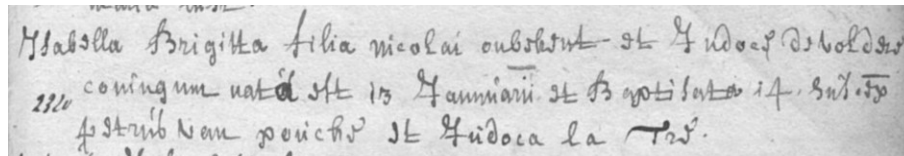 Isabella Brigitta filia nicolai onbekent et Judocę de voldere
coningum nata est 13 Jannuarii et Baptisata 14. Sus. ex
petrus van pouche et Judoca la Tre.